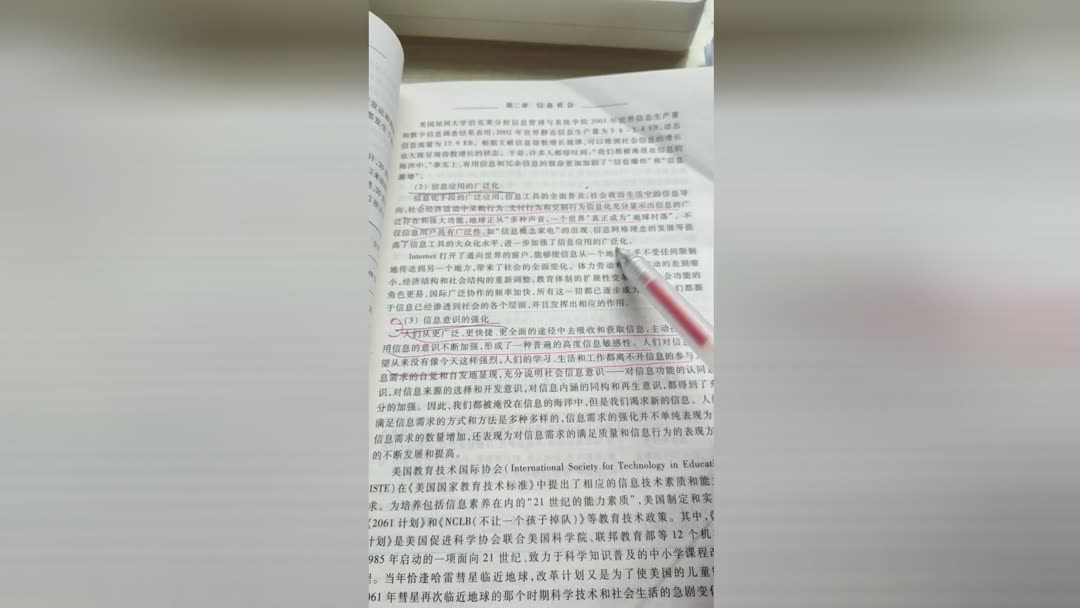 第二章 信息社会
美国加州大学伯克莱分校信息管理与系统学院2003年世界信息生产量
和数字信息调查结果表明:2002年世界静态信息生产量为3.6-5.4 EB,动态
信息流量为17.9 EB。根据文献信息指数增长规律,可以推测社会信息的增长
也大致呈现指数增长的状态。于是,许多人都惊叹到:“我们都被淹没在信息的
海洋中。”事实上,有用信息和冗余信息的混杂更加加剧了“信息爆炸”和“信息
激增”。
(2)信息应用的广泛化
信息化手段的广泛应用,信息工具的全面普及,社会政治生活中的信息导
向,社会经济活动中采购行为、支付行为和交割行为信息化充分显示出信息的广
泛存在和强大功能,地球正从“多种声音,一个世界”真正成为“地球村落”。不
仅信息用户具有广泛性,如“信息概念家电”的出现、信息网格理念的发展等提
高了信息工具的大众化水平,进一步加强了信息应用的广泛化。
Internet打开了通向世界的窗户,能够使信息从一个地 乎不受任何限制
地传送到另一个地方,带来了社会的全面变化。体力劳动 动的差别缩
小,经济结构和社会结构的重新调整,教育体制的扩展性变 会功能的
角色更易,国际广泛协作的频率加快,所有这一切都已逐步成为 们都
于信息已经渗透到社会的各个层面,并且发挥出相应的作用。
(3)信息意识的强化
人们从更广泛、更快捷、更全面的途径中去吸收和获取信息,主动
用信息的意识不断加强,形成了一种普遍的高度信息敏感性。人们对信
望从来没有像今天这样强烈,人们的学习、生活和工作都离不开信息的参与
息需求的自觉和自发地显现,充分说明社会信息意识——对信息功能的认同
识,对信息来源的选择和开发意识,对信息内涵的同构和再生意识,都得到了
分的加强。因此,我们都被淹没在信息的海洋中,但是我们渴求新的信息。人
满足信息需求的方式和方法是多种多样的,信息需求的强化并不单纯表现为
信息需求的数量增加,还表现为对信息需求的满足质量和信息行为的表现方
的不断发展和提高。
美国教育技术国际协会(International Society for Technology in Educati
ISTE)在《美国国家教育技术标准》中提出了相应的信息技术素质和能
求。为培养包括信息素养在内的“21世纪的能力素质”,美国制定和实
《2061计划》和《NCLB(不让一个孩子掉队)》等教育技术政策。其中,《
计划》是美国促进科学协会联合美国科学院、联邦教育部等12个机
985年启动的一项面向21世纪、致力于科学知识普及的中小学课程改
。当年恰逢哈雷彗星临近地球,改革计划又是为了使美国的儿童
061年彗星再次临近地球的那个时期科学技术和社会生活的急剧变化